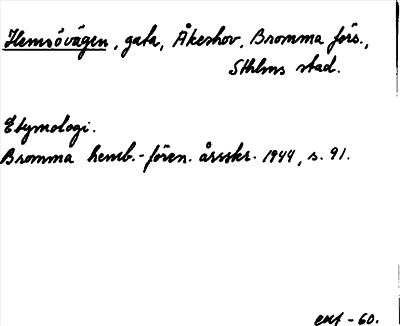 Hemsövägen, gata, Åkeshov, Bromma förs.,
Sthlms stad.
Etymologi.
Bromma hemb.-fören. årsskr. 1944, s. 91.
-60.